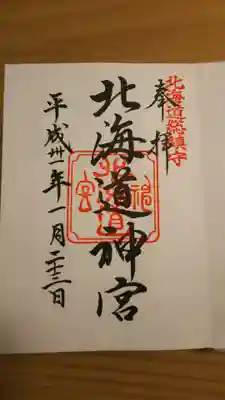 北海道総鎮守
奉拝
北海道神宮
平成卅一年一月二十三日